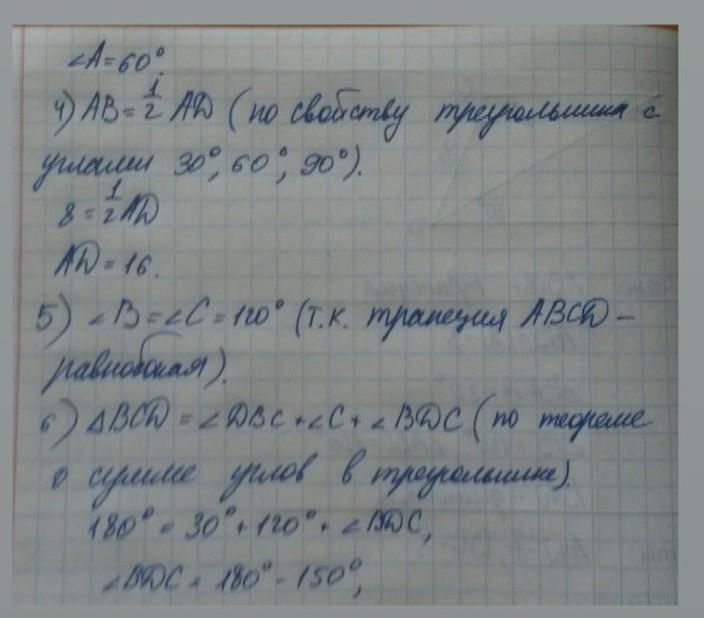 ∠A=60°.
4) AB=1/2 AD (по свойству треугольника с
углами 30°, 60°, 90°).
8=1/2AD
AD=16.
5) ∠B=∠C=120° (т.к. трапеция ABCD –
равнобокая).
6) ΔBCD=∠DBC+∠C+∠BDC (по теореме
о сумме углов в треугольнике).
180°=30°+120°+∠BDC,
∠BDC=180°-150°,